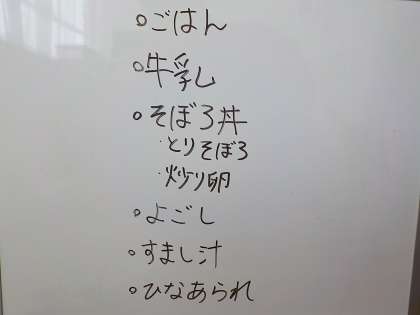 ○ごはん
○牛乳
○そぼろ丼
・とりそぼろ
・炒り卵
○よごし
○すまし汁
○ひなあられ